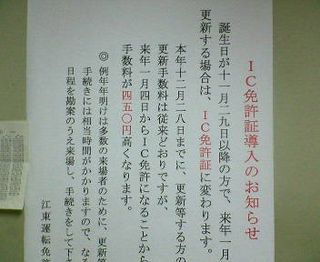 IC免許証導入のお知らせ
誕生日が十一月二九日以降の方で、来年一月
更新する場合は、IC免許証に変わります。
本年十二月二八日までに、更新等する方の
更新手数料は従来どおりですが、
来年一月四日からIC免許になることから
手数料が四五〇円高くなります。
◎例年年明けは多数の来場者のために、更新等
手続きには相当時間がかかりますので、な
日程を勘案のうえ来場し、手続きをして下
江東運転免許